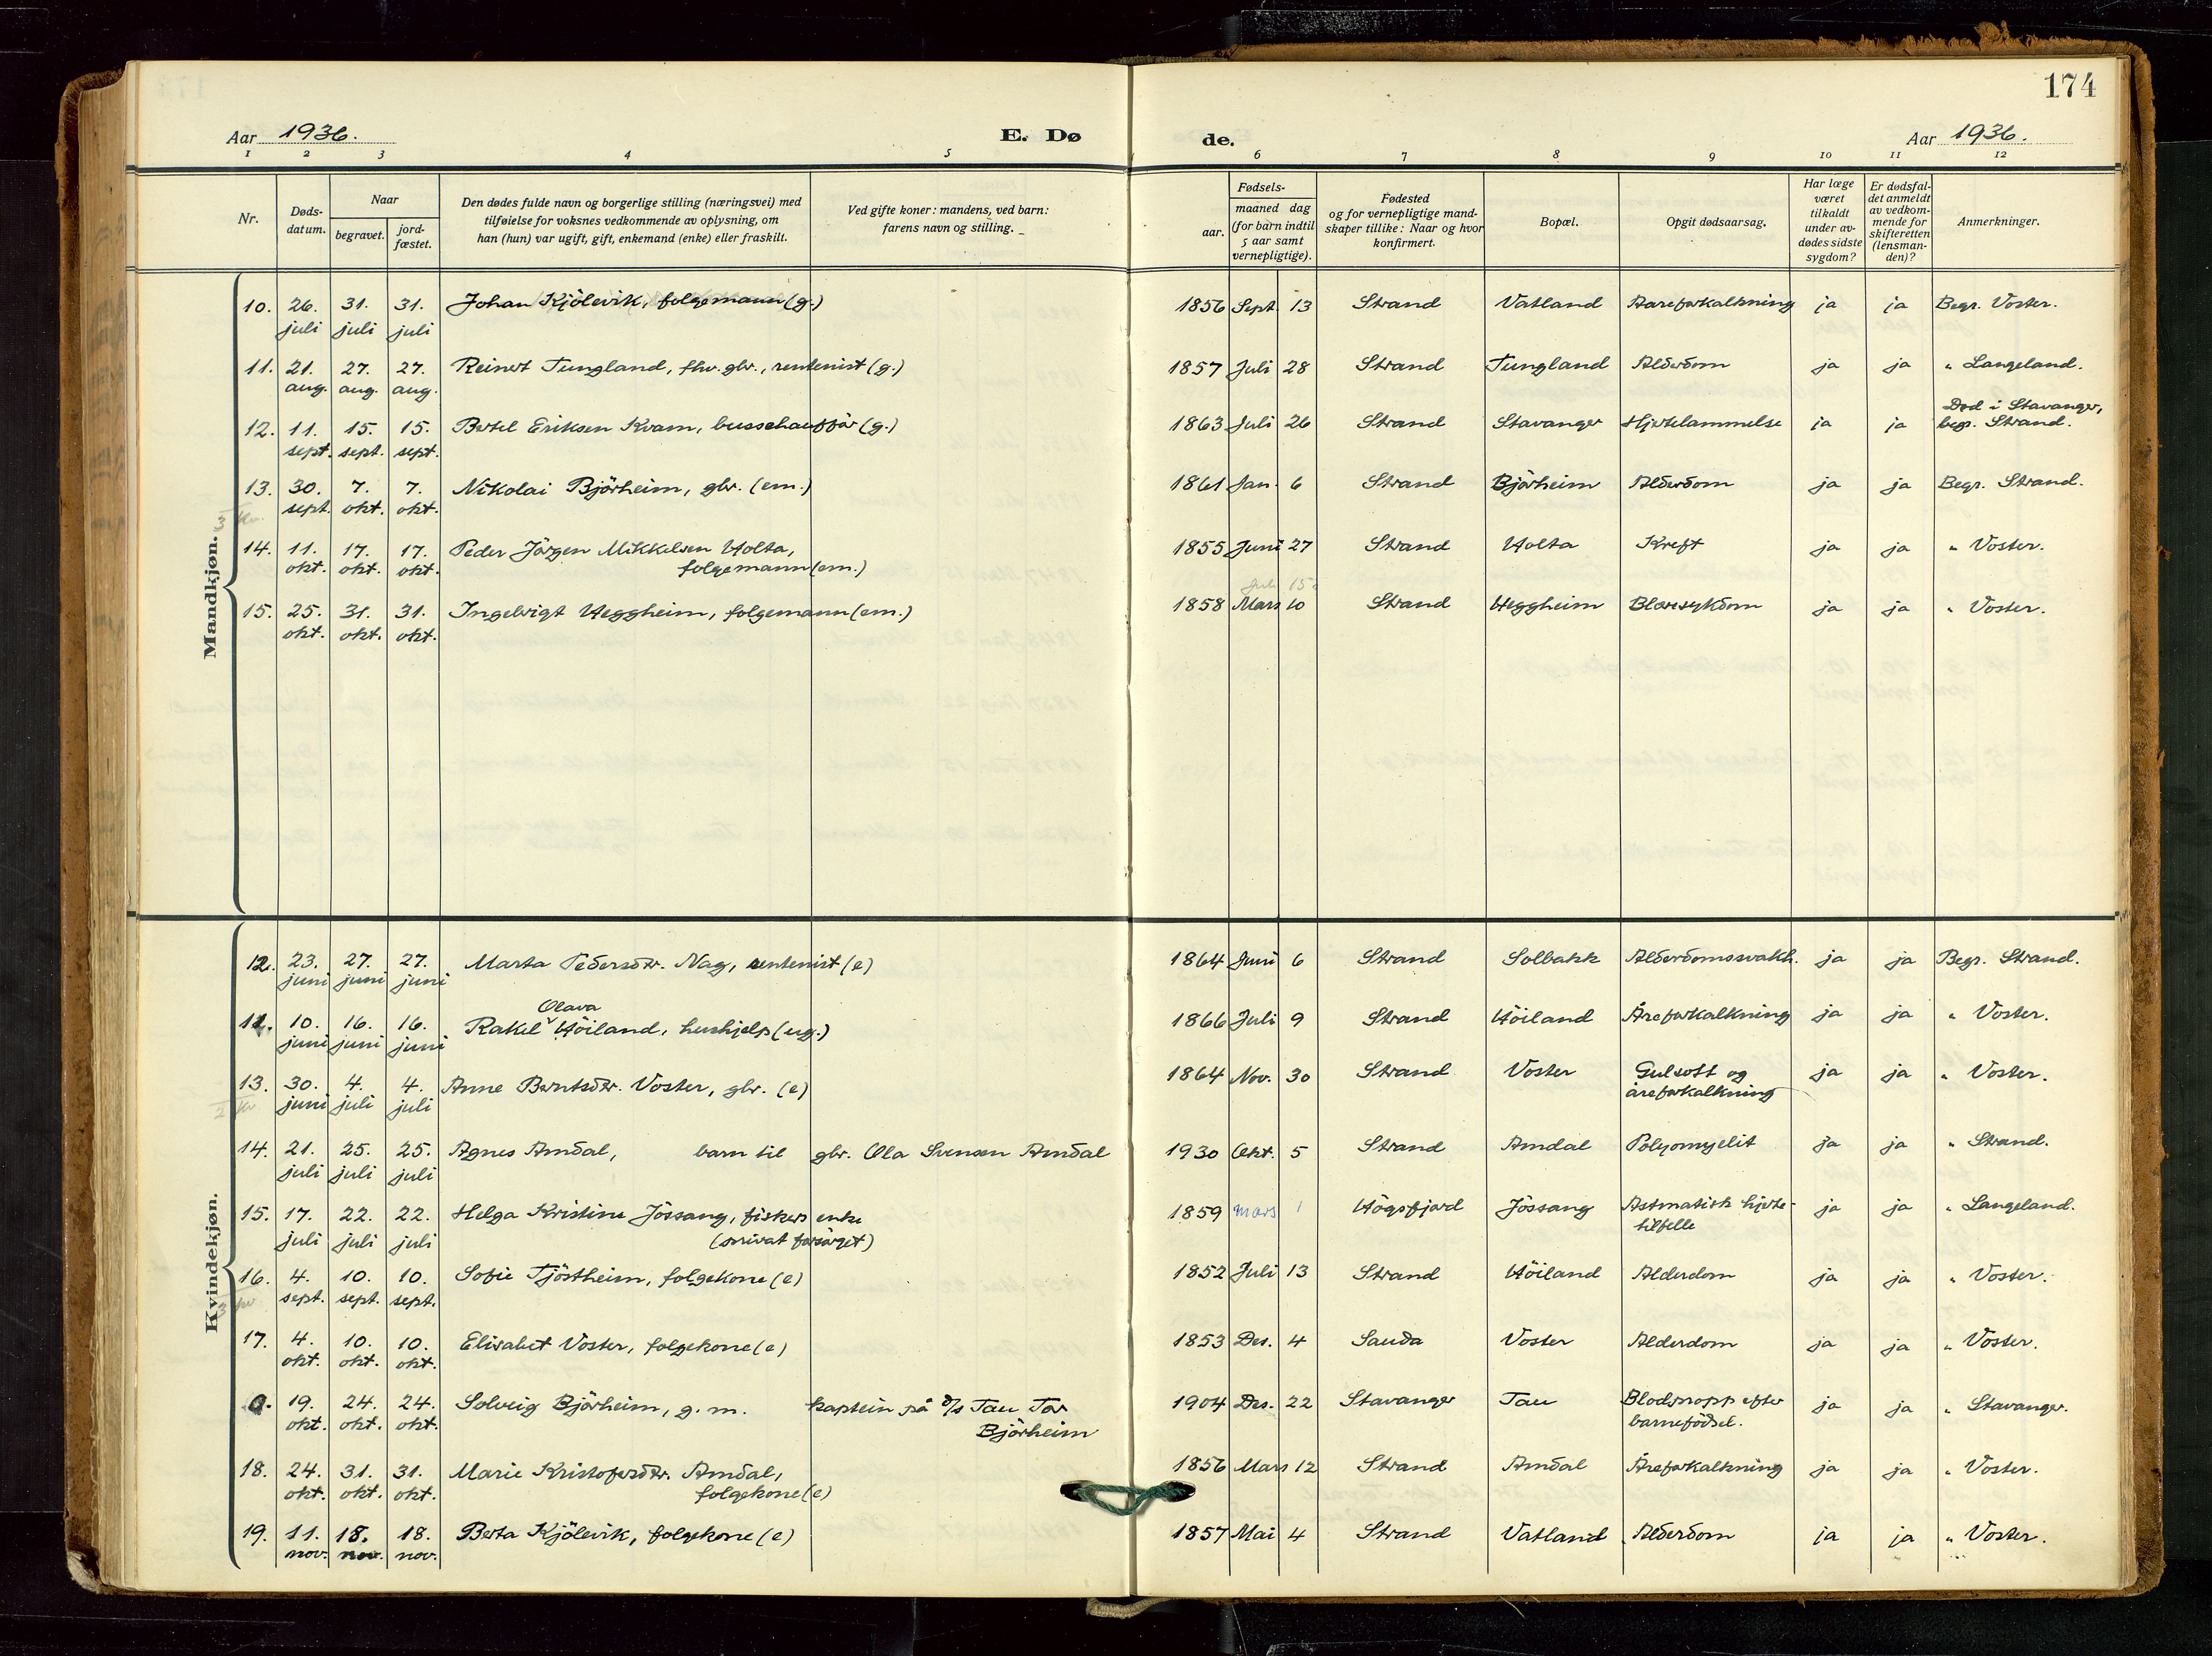 174
Aar 1936.
E. Dø
de.
Aar 1936.
1 2 3 4 5 6 7 8 9 10 11 12
Nr.
Døds-
datum.
Naar
begravet.
jord-
fæstet.
Den dødes fulde navn og borgerlige stilling (næringsvei) med
tilføielse for voksnes vedkommende av oplysning, om
han (hun) var ugift, gift, enkemand (enke) eller fraskilt.
Ved gifte koner: mandens, ved barn:
farens navn og stilling.
Fødsels-
aar.
maaned dag
(for barn indtil
5 aar samt
vernepligtige).
Fødested
og for vernepligtige mand-
skaper tillike: Naar og hvor
konfirmert.
Bopæl.
Opgit dødsaarsag.
Har læge
været
tilkaldt
under av-
dødes sidste
sygdom?
Er dødsfal-
det anmeldt
av vedkom-
mende for
skifteretten
(lensman-
den)?
Anmerkninger.
Mandkjøn.
10. 26. 31. 31. Johan Kjölevik, folgemann (g.) 1856 Sept. 13 Strand Vatland Aareforkalkning ja ja Begr. Voster.
juli juli juli
11. 21. 27. 27. Reinert Tungland, fhv. gbr., rentenist (g.) 1857 Juli 28 Strand Tungland Alderdom ja ja " Langeland.
aug. aug. aug.
Död i Stavanger,
12. 11. 15. 15. Bertel Eriksen Kvam, busschafför (g.) 1863 Juli 26 Strand Stavanger Hjertelammelse ja ja begr. Strand.
sept. sept. sept.
13. 30. 7. 7. Nikolai Björheim, gbr. (em.) 1861 Jan. 6 Strand Björheim Alderdom ja ja Begr. Strand.
sept. okt. okt.
3 kv.
14. 11. 17. 17. Peder Jörgen Mikkelsen Holta, 1855 Juni 27 Strand Holta Kreft ja ja " Voster.
okt. okt. okt. folgemann (em.)
Juli 15
15. 25. 31. 31. Ingebrigt Heggheim, folgemann (em.) 1858 Mars 10 Strand Heggheim Blæresykdom ja ja " Voster.
okt. okt. okt.
Kvindekjøn.
12. 23. 27. 27. Marta Pedersdtr. Nag, rentenist (e) 1864 Juni 6 Strand Solbakk Alderdomssvakh. ja ja Begr. Strand.
juni juni juni
Olava
11. 10. 16. 16. Rakel Höiland, hushjelp (ug.) 1866 Juli 9 Strand Höiland Åreforkalkning ja ja " Voster.
juni juni juni
13. 30. 4. 4. Anne Berntsdtr. Voster, gbr. (e) 1864 Nov. 30 Strand Voster Gulsott og ja ja " Voster.
juni juli juli åreforkalkning
2 kv
14. 21. 25. 25. Agnes Amdal, barn til gbr. Ola Svensen Amdal 1930 Okt. 5 Strand Amdal Polyomyelit ja ja " Strand.
juli juli juli
15. 17. 22. 22. Helga Kristine Jössang, fiskers enke 1859 mars 1 Högsfjord Jössang Astmatisk hjerte- ja ja " Langeland.
juli juli juli (privat forsörget) tilfelle
16. 4. 10. 10. Sofie Tjöstheim, folgekone (e) 1852 Juli 13 Strand Höiland Alderdom ja ja " Voster.
sept. sept. sept.
3 kv
17. 4. 10. 10. Elisabet Voster, folgekone (e) 1853 Des. 4 Sauda Voster Alderdom ja ja " Voster.
okt. okt. okt.
0. 19. 24. 24. Solveig Björheim, g. m. kaptein på d/s Tau Tor 1904 Des. 22 Stavanger Tau Blodpropp efter ja ja " Stavanger.
okt. okt. okt. Björheim barnefödsel.
18. 24. 31. 31. Marie Kristofersdtr. Amdal, 1856 Mars 12 Strand Amdal Åreforkalkning ja ja " Voster.
okt. okt. okt. folgekone (e)
19. 11. 18. 18. Berta Kjölevik, folgekone (e) 1857 Mai 4 Strand Vatland Alderdom ja ja " Voster.
nov. nov. nov.